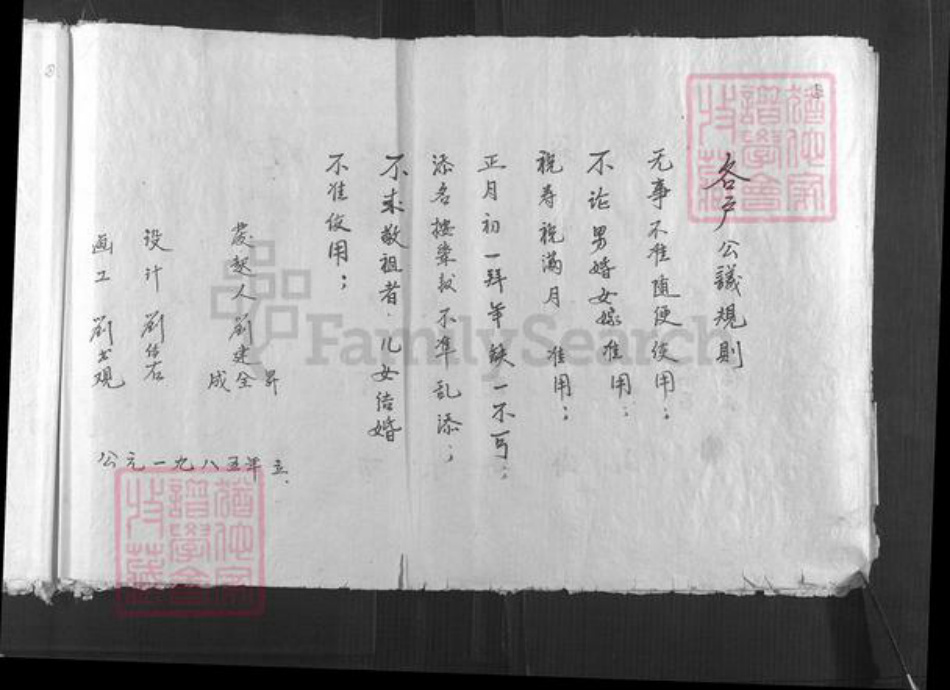 各戶公議規則
无事不准随便使用；
不论男婚女嫁准用；
祝寿祝满月 准用；
正月初一拜年缺一不可；
添名按輩叙不準乱添；
不来敬祖者．儿女结婚
不准使用；
發起人 劉建昇
全
成
设计 劉佐右
画工 劉光观
公元一九八五年立．
猶他家
譜學會
收藏
FamilySearch
猶他家
譜學會
收藏